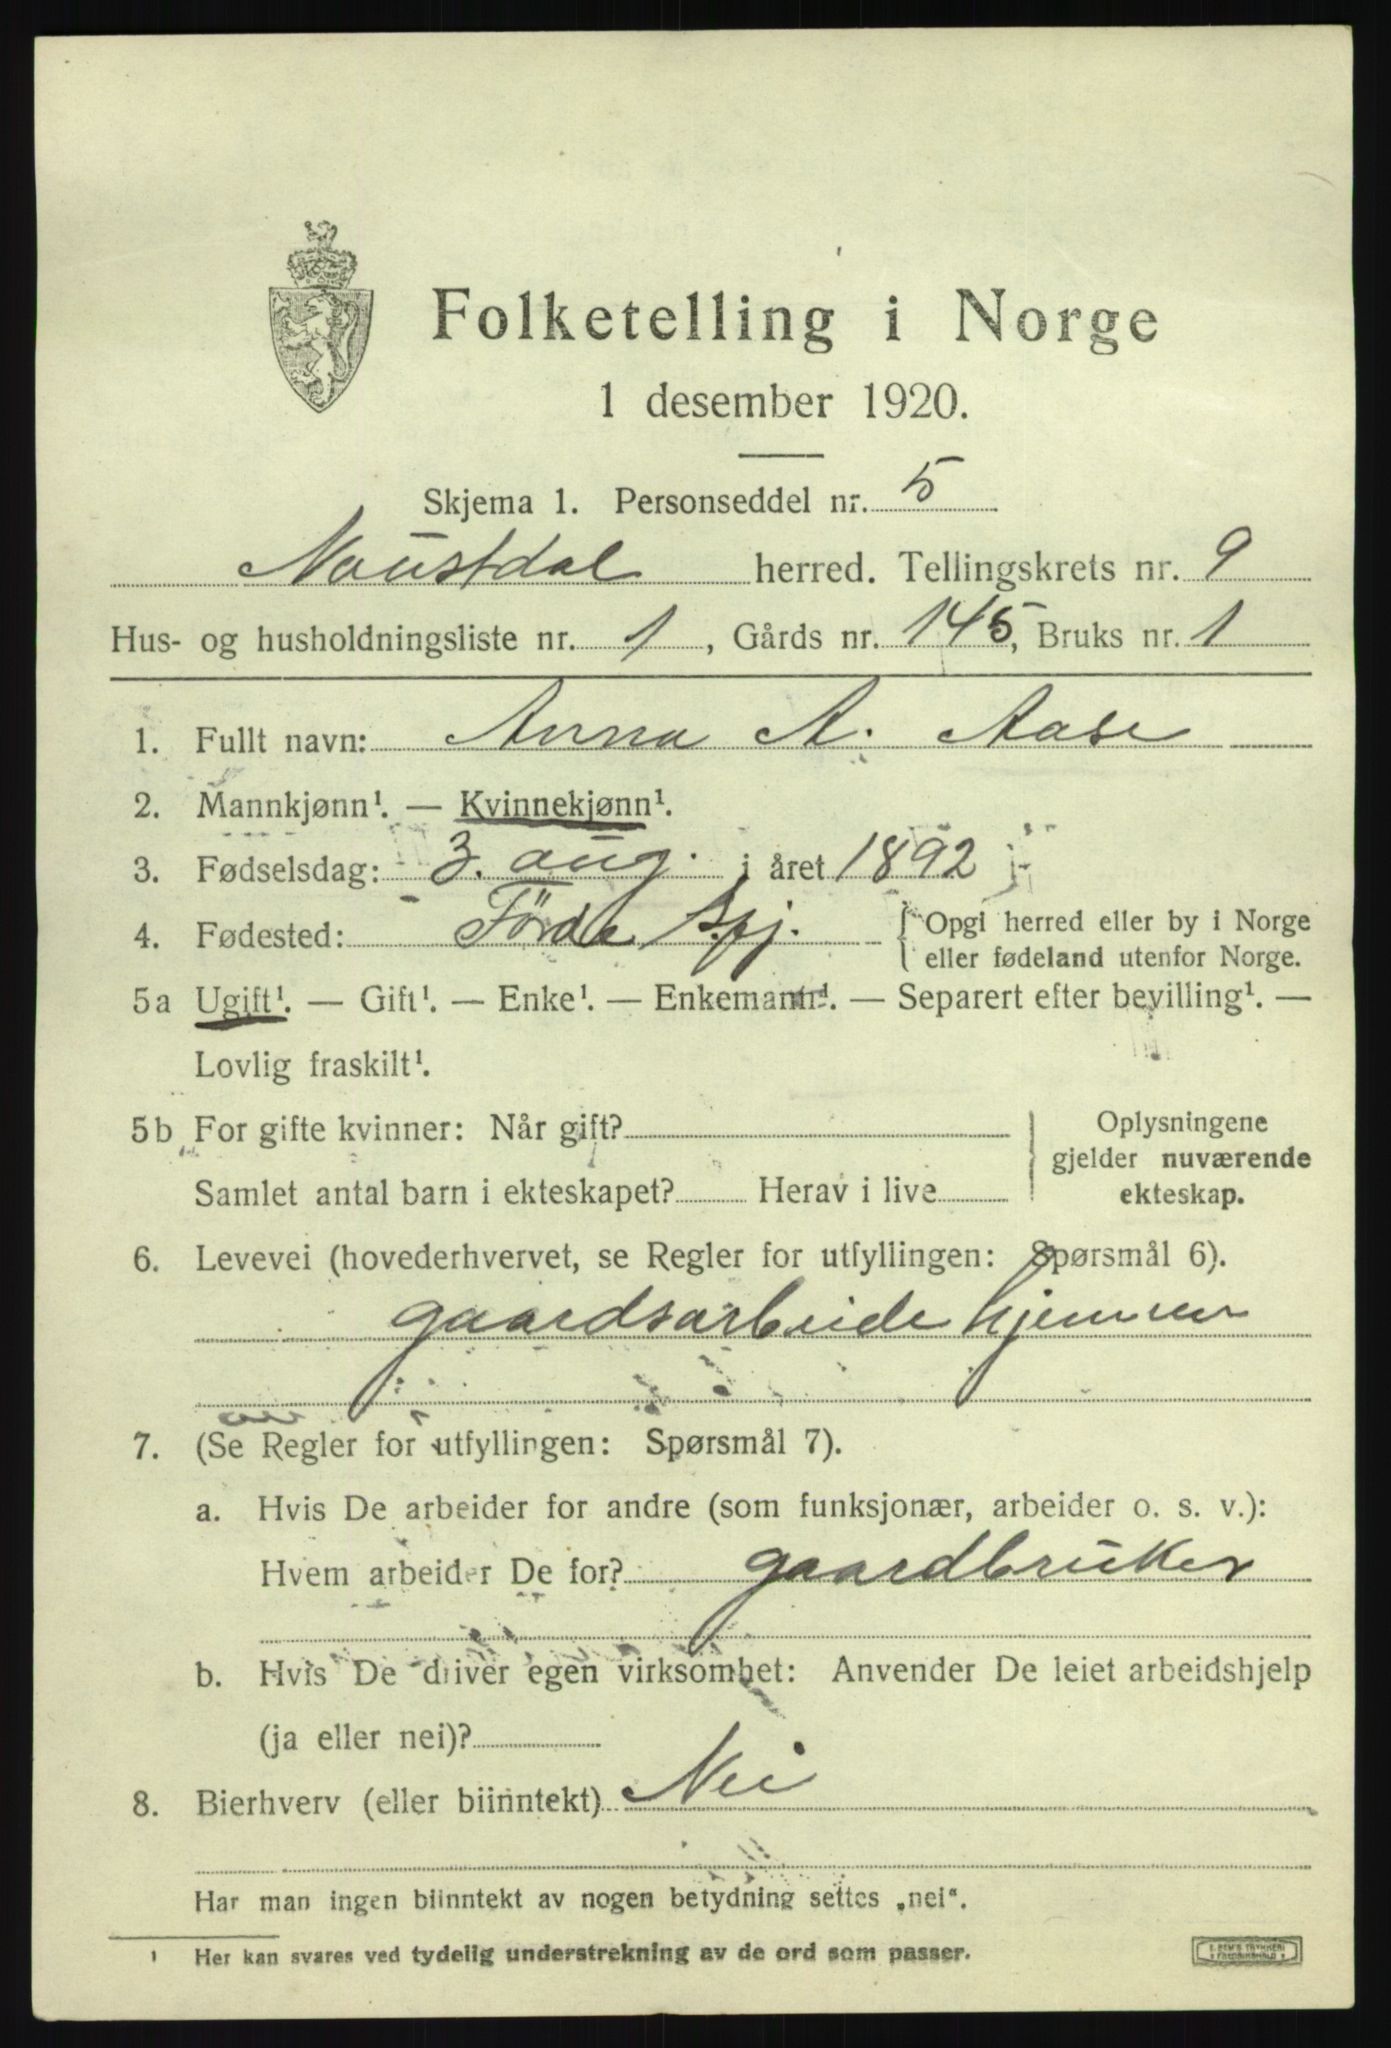 Folketelling i Norge
1 desember 1920.
Skjema 1. Personseddel nr. 5
Naustdal herred. Tellingskrets nr. 9
Hus- og husholdningsliste nr. 1, Gårds nr. 145, Bruks nr. 1
1. Fullt navn: Anna A. Aase
2. Mannkjønn¹. — Kvinnekjønn¹.
3. Fødselsdag: 3. aug. i året 1892
4. Fødested: Förde S.fj. { Opgi herred eller by i Norge
eller fødeland utenfor Norge.
5a Ugift¹. — Gift¹. — Enke¹. — Enkemann¹. — Separert efter bevilling¹. —
Lovlig fraskilt¹.
5b For gifte kvinner: Når gift? Oplysningene
gjelder nuværende
Samlet antal barn i ekteskapet? Herav i live ekteskap.
6. Levevei (hovederhvervet, se Regler for utfyllingen: Spørsmål 6).
gaardsarbeide hjemme
7. (Se Regler for utfyllingen: Spørsmål 7).
a. Hvis De arbeider for andre (som funksjonær, arbeider o. s. v.):
Hvem arbeider De for? gaardbruker
b. Hvis De driver egen virksomhet: Anvender De leiet arbeidshjelp
(ja eller nei)?
8. Bierhverv (eller biinntekt) Nei
Har man ingen biinntekt av nogen betydning settes „nei“.
¹ Her kan svares ved tydelig understrekning av de ord som passer.